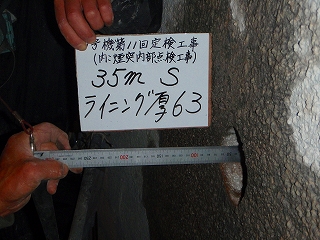 号機第11回定検工事
(内:煙突内部点検工事)
35m S
ライニング厚63
200
100